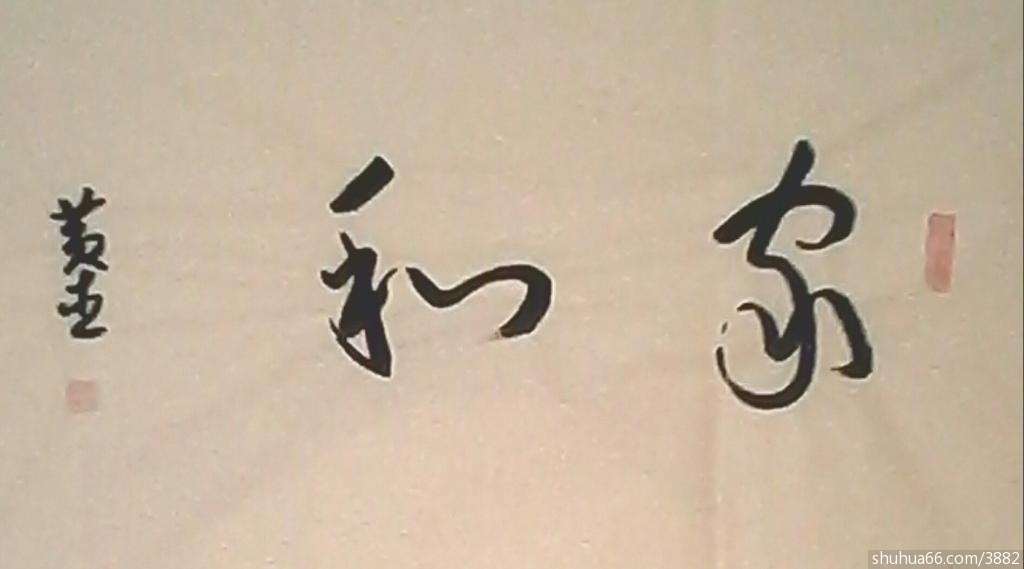 家和
shuhua66.com/3882